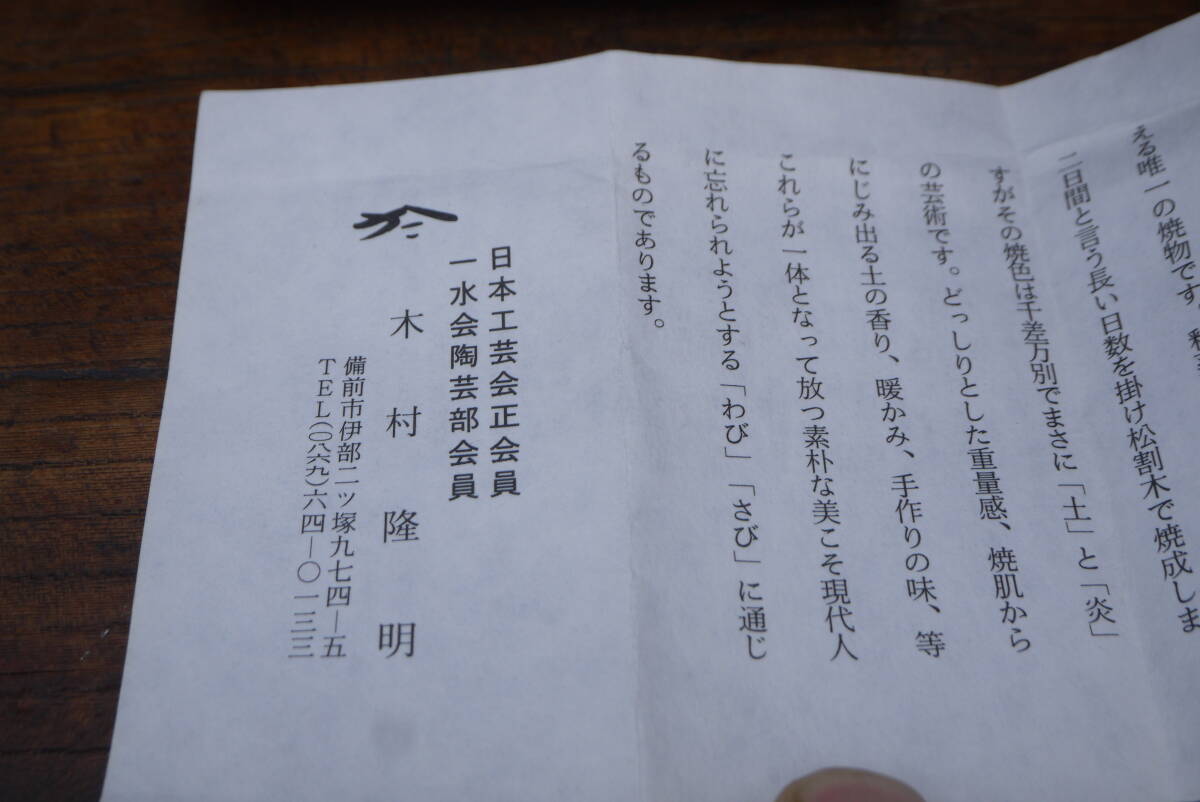 える唯一の焼物です。
二日間と言う長い日数を掛け松割木で焼成しま
すがその焼色は千差万別でまさに「土」と「炎」
の芸術です。どっしりとした重量感、焼肌から
にじみ出る土の香り、暖かみ、手作りの味、等
これらが一体となって放つ素朴な美こそ現代人
に忘れられようとする「わび」「さび」に通じ
るものであります。
日本工芸会正会員
一水会陶芸部会員
木村隆明
備前市伊部二ツ塚九七四－五
TEL(〇八六九)六四－〇一三三